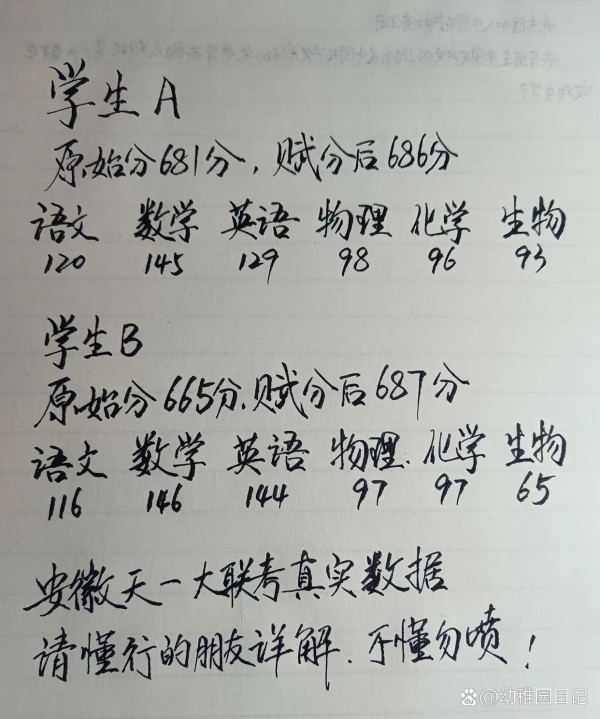 学生A
原始分681分，赋分后686分
语文 数学 英语 物理 化学 生物
120 145 129 98 96 93
学生B
原始分665分.赋分后687分
语文 数学 英语 物理. 化学 生物
116 146 144 97 97 65
安徽天一大联考真实数据
请懂行的朋友详解.不懂勿喷！
幼稚园日记